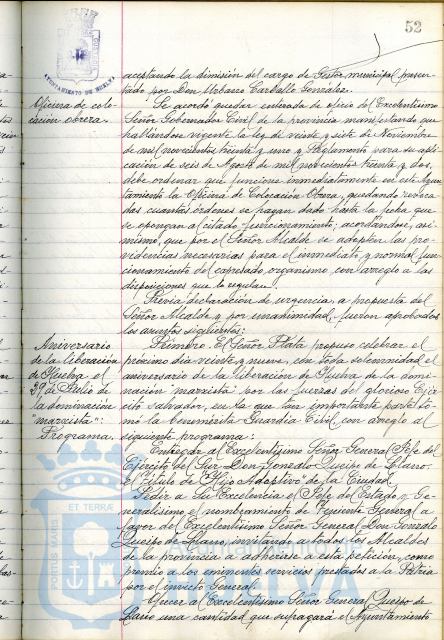 52
AYUNTAMIENTO DE HUELVA
aceptando la dimisión del cargo de Gestor municipal presen-
tado por Don Urbano Carballo González.
Oficina de colo-
cación obrera.
Se acordó quedar enterada de oficio del Excelentísimo
Señor Gobernador Civil de la provincia manifestando que
hallándose vigente la ley de veinte y siete de Noviembre
de mil novecientos treinta y uno y Reglamento para su apli-
cación de seis de Agosto de mil novecientos treinta y dos,
debe ordenar que funcione inmediatamente en este Ayun-
tamiento la Oficina de Colocación Obrera, quedando revoca-
das cuantas órdenes se hayan dado hasta la fecha que
se opongan al citado funcionamiento, acordándose, asi-
mismo, que por el Señor Alcalde se adopten las pro-
videncias necesarias para el inmediato y normal fun-
cionamiento del expresado organismo con arreglo a las
disposiciones que lo regulan.
Previa declaración de urgencia, a propuesta del
Señor Alcalde y por unanimidad, fueron aprobados
los asuntos siguientes:
Aniversario
de la liberación
de Huelva el
29 de Julio de
la dominación
marxista":
Programa,
Primero. El Señor Plata propuso celebrar el
próximo dia veinte y nueve, con toda solemnidad el
aniversario de la liberación de Huelva de la domi-
nación "marxista" por las fuerzas del glorioso Ejér-
cito salvador, en la que tan importante parte to-
mó la benemérita Guardia Civil con arreglo al
siguiente programa:
Entregar al Excelentísimo Señor General Jefe del
Ejército del Sur Don Gonzalo Queipo de Llano
el título de "Hijo Adoptivo" de la Ciudad.
Pedir a Su Excelencia el Jefe del Estado y Ge-
neralísimo el nombramiento de Teniente General a
favor del Excelentísimo Señor General Don Gonzalo
Queipo de Llano, invitando a todos los Alcaldes
de la provincia a adherirse a esta petición, como
premio a los eminentes servicios prestados a la Patria
por el invicto General.
Ofrecer al Excelentísimo Señor General Queipo de
Llano una cantidad que sufragará el Ayuntamiento
PORTUS MARIS ET TERRAE
HUELVA